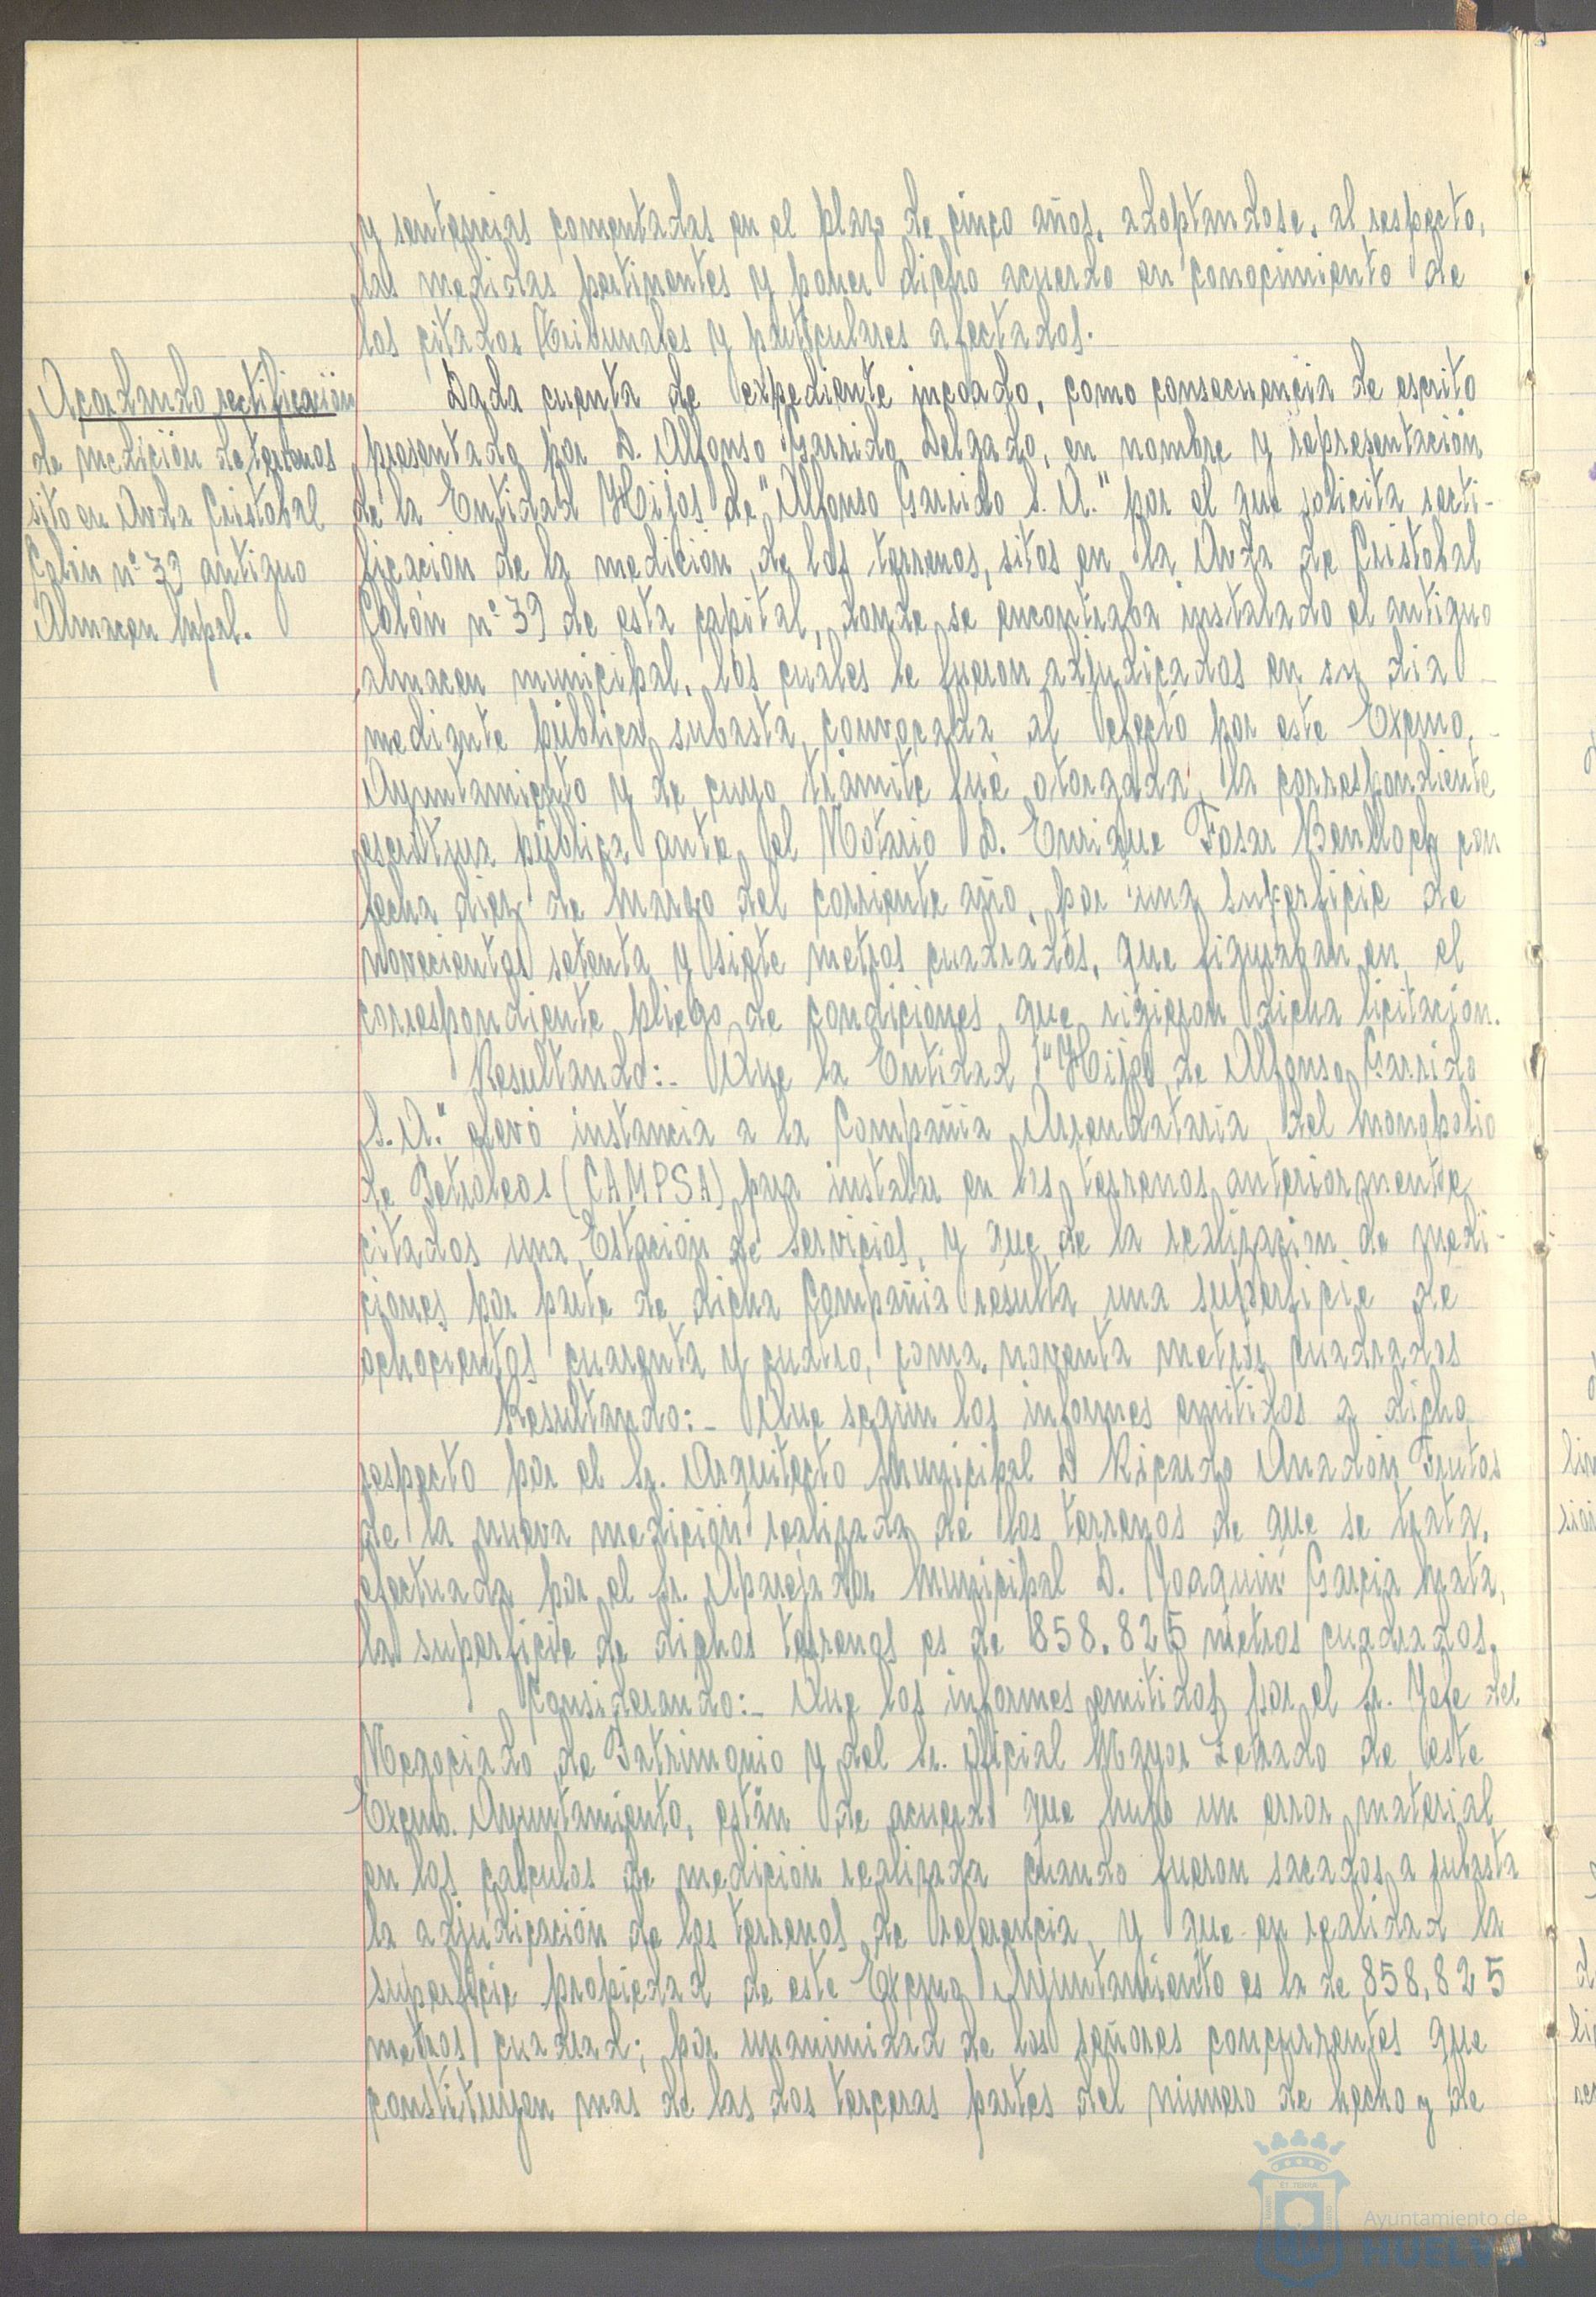 y sentencias comentadas en el plazo de cinco años, adoptandose, al respecto,
las medidas pertinentes y poner dicho acuerdo en conocimiento de
los citados Tribunales y particulares afectados.
Acordando rectificación
de medición de terrenos
sito en Avda Cristobal
Colón nº 39 antiguo
Almacen Mpal.
Dada cuenta de expediente incoado, como consecuencia de escrito
presentado por D. Alfonso Garrido Delgado, en nombre y representación
de la Entidad Hijos de "Alfonso Garrido S. A." por el que solicita recti-
ficación de la medición de los terrenos, sitos en la Avda de Cristobal
Colón nº 39 de esta capital, donde se encontraba instalado el antiguo
almacen municipal, los cuales le fueron adjudicados en su dia
mediante pública subasta, convocada al efecto por este Excmo.
Ayuntamiento y de cuyo trámite fué otorgada la correspondiente
escritura pública ante el Notario D. Enrique Fosar Benlloch con
fecha diez de Marzo del corriente año, por una superficie de
novecientos setenta y siete metros cuadrados, que figuraban en el
correspondiente pliego de condiciones que rigieron dicha licitación.
Resultando:- Que la Entidad "Hijos de Alfonso Garrido
S. A." elevó instancia a la Compañia Arrendataria del Monopolio
de Petroleos (CAMPSA) para instalar en los terrenos anteriormente
citados una Estación de Servicios, y que de la realización de medi-
ciones por parte de dicha Compañia resulta una superficie de
ochocientos cuarenta y cuatro, coma, noventa metros cuadrados
Resultando:- Que según los informes emitidos a dicho
respecto por el Sr. Arquitecto Municipal D Ricardo Anadón Frutos
de la nueva medición realizada de los terrenos de que se trata,
efectuada por el Sr. Aparejador Municipal D. Joaquin Garcia Mata,
la superficie de dichos terrenos es de 858.825 metros cuadrados.
Considerando:- Que los informes emitidos por el Sr. Jefe del
Negociado de Patrimonio y del Sr. Oficial Mayor Letrado de este
Excmo. Ayuntamiento, están de acuerdo que hubo un error material
en los calculos de medición realizada cuando fueron sacados a subasta
la adjudicación de los terrenos de referencia y que en realidad la
superficie propiedad de este Excmo Ayuntamiento es la de 858,825
metros cuadrad; por unanimidad de los señores concurrentes que
constituyen mas de las dos terceras partes del número de hecho y de
Ayuntamiento de
HUELVA